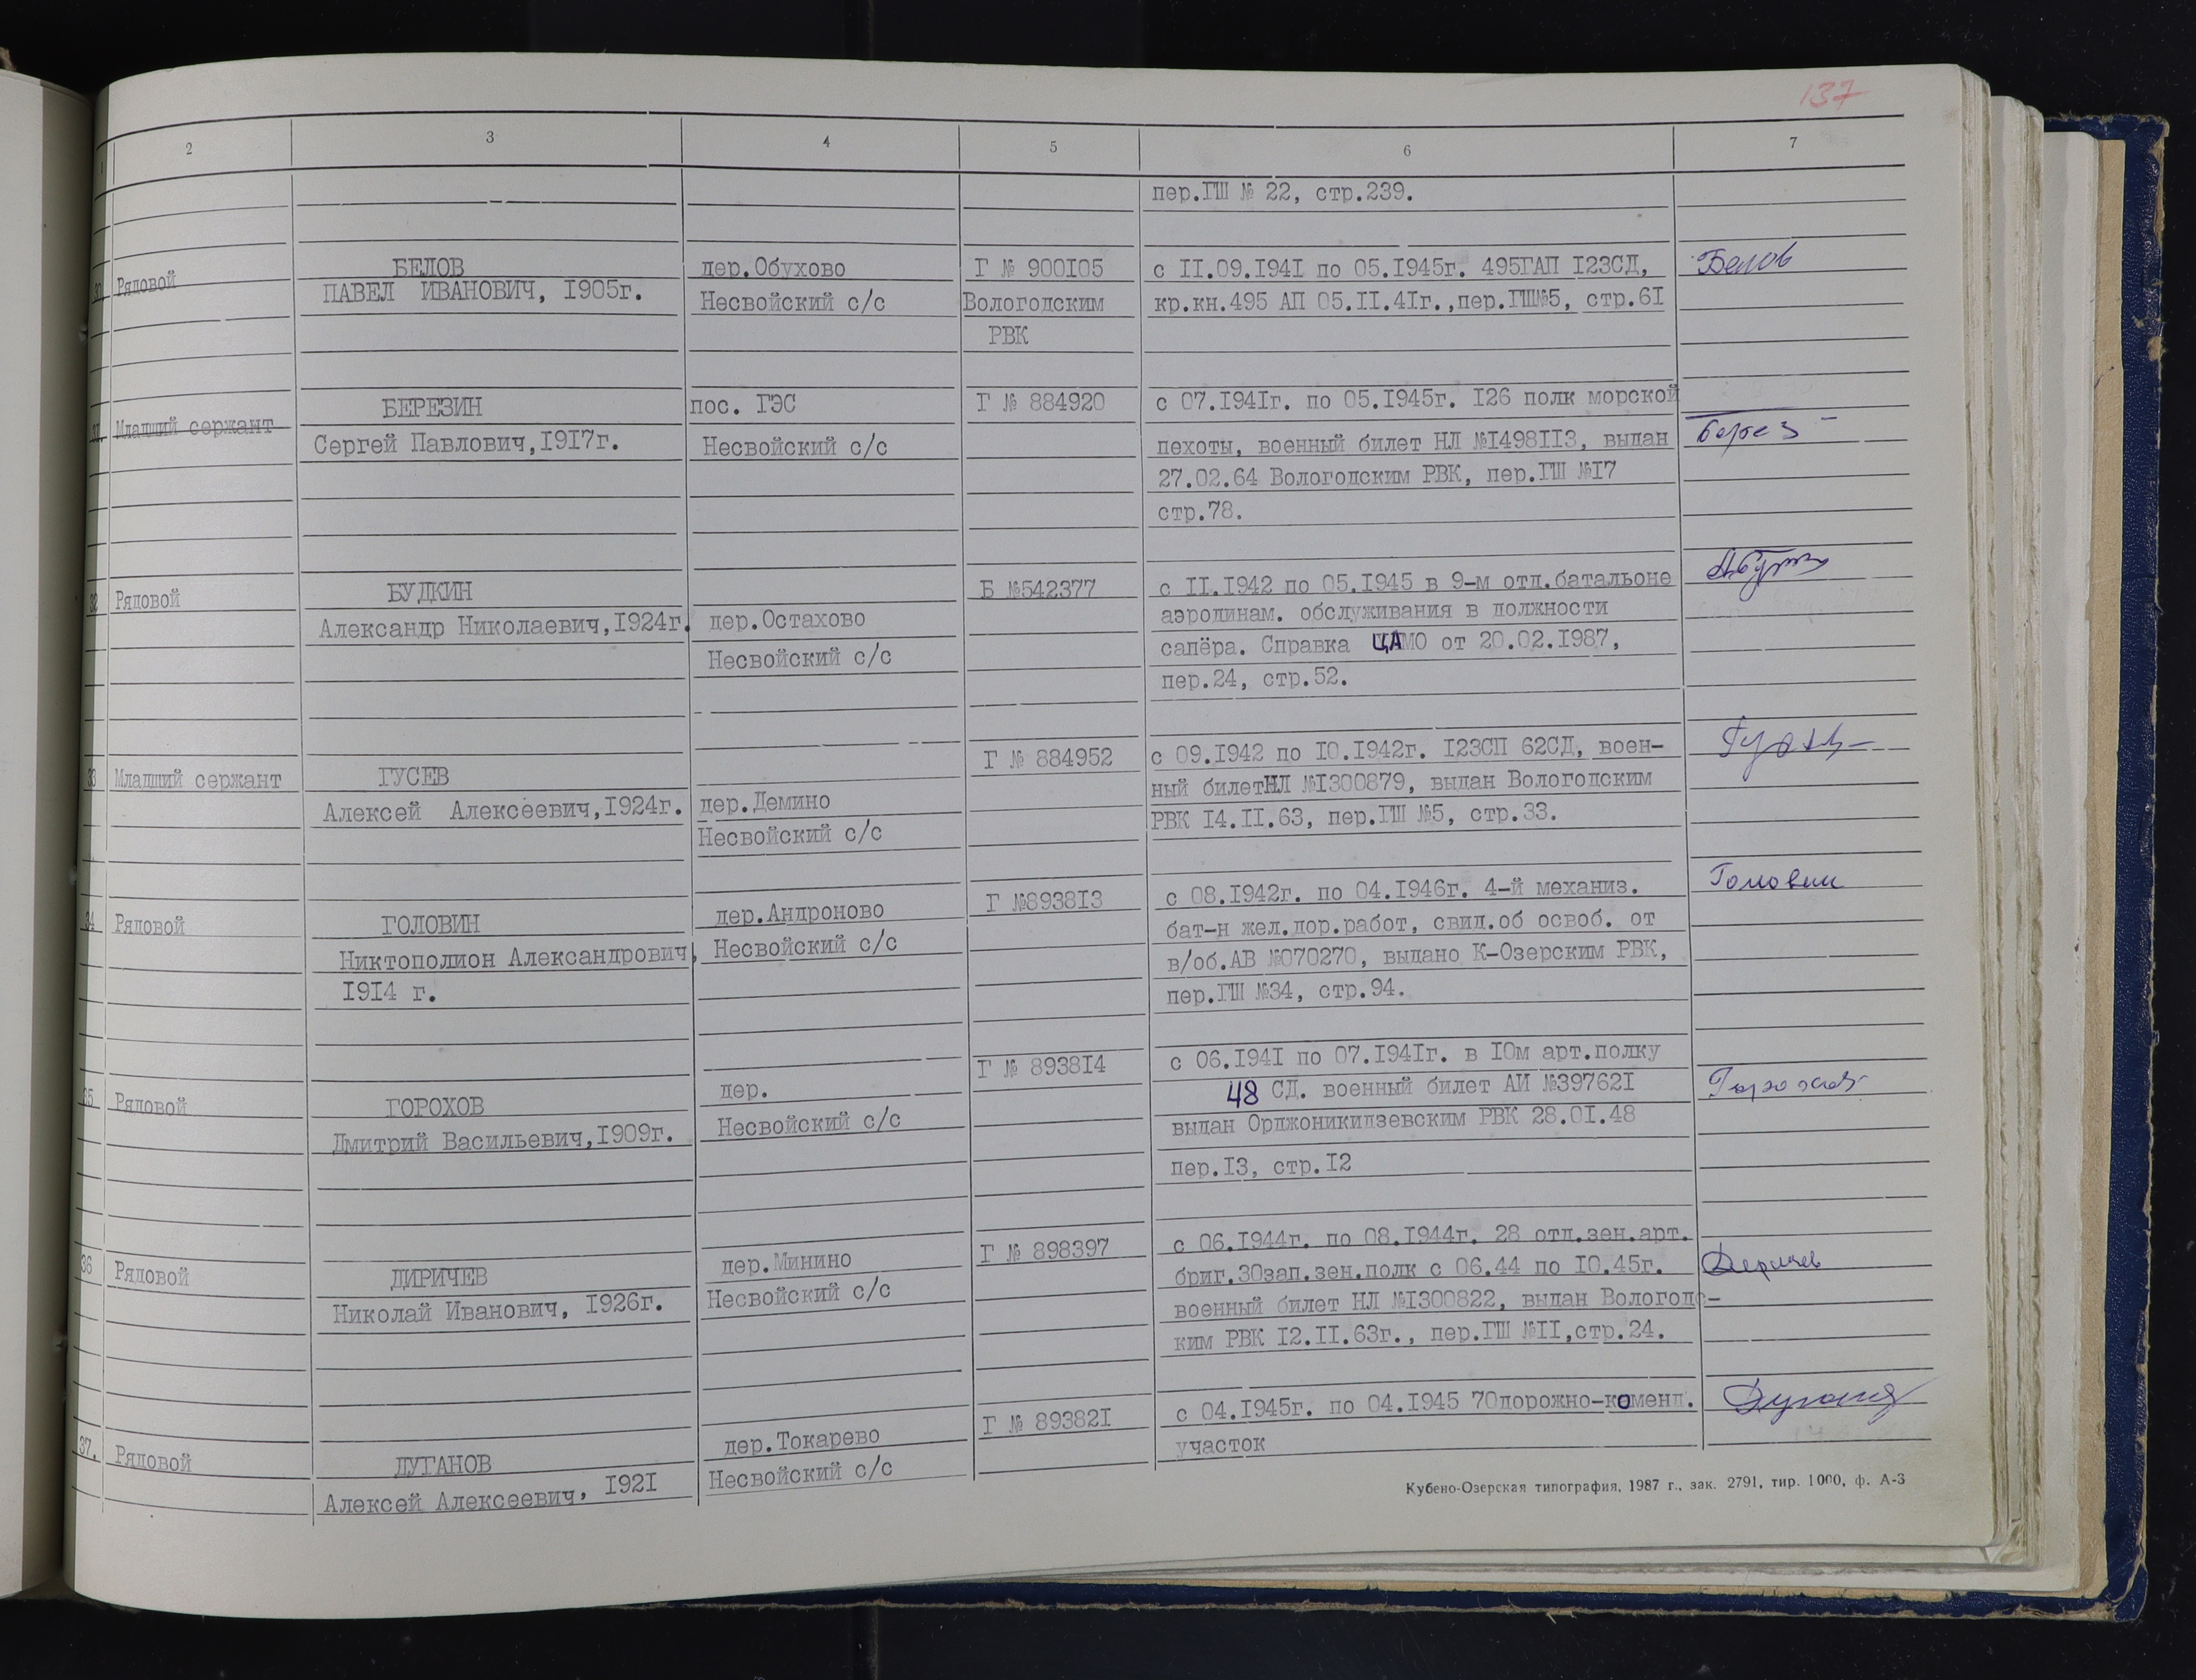 137
1 2 3 4 5 6 7
пер.ГШ № 22, стр.239.
30 Рядовой БЕЛОВ дер.Обухово Г № 900I05 с II.09.I94I по 05.I945г. 495ГАП I23СД, Белов
ПАВЕЛ ИВАНОВИЧ, I905г. Несвойский с/с Вологодским кр.кн.495 АП 05.II.4Iг.,пер.ГШ№5, стр.6I
РВК
31. Младший сержант БЕРЕЗИН пос. ГЭС Г № 884920 с 07.I94Iг. по 05.I945г. I26 полк морской
Сергей Павлович,I9I7г. Несвойский с/с пехоты, военный билет НЛ №I498II3, выдан Берез
27.02.64 Вологодским РВК, пер.ГШ №I7
стр.78.
32 Рядовой БУДКИН Б №542377 с II.I942 по 05.I945 в 9-м отд.батальоне
Александр Николаевич,I924г. дер.Остахово аэродинам. обслуживания в должности
Несвойский с/с сапёра. Справка ЦАМО от 20.02.I987,
пер.24, стр.52.
33 Младший сержант ГУСЕВ Г № 884952 с 09.I942 по I0.I942г. I23СП 62СД, воен-
Алексей Алексеевич,I924г. дер.Демино ный билетНЛ №I300879, выдан Вологодским
Несвойский с/с РВК I4.II.63, пер.ГШ №5, стр.33.
34 Рядовой ГОЛОВИН дер.Андроново Г №8938I3 с 08.I942г. по 04.I946г. 4-й механиз. Головин
Никтополион Александрович, Несвойский с/с бат-н жел.дор.работ, свид.об освоб. от
I9I4 г. в/об.АВ №070270, выдано К-Озерским РВК,
пер.ГШ №34, стр.94.
35 Рядовой ГОРОХОВ дер. Г № 8938I4 с 06.I94I по 07.I94Iг. в I0м арт.полку
Дмитрий Васильевич,I909г. Несвойский с/с 48 СД. военный билет АИ №39762I Горохов
выдан Орджоникидзевским РВК 28.0I.48
пер.I3, стр.I2
36 Рядовой ДИРИЧЕВ дер.Минино Г № 898397 с 06.I944г. по 08.I944г. 28 отд.зен.арт.
Николай Иванович, I926г. Несвойский с/с бриг.30зап.зен.полк с 06.44 по I0.45г.
военный билет НЛ №I300822, выдан Вологодс-
ким РВК I2.II.63г., пер.ГШ №II,стр.24.
37. Рядовой ДУГАНОВ дер.Токарево Г № 89382I с 04.I945г. по 04.I945 70дорожно-коменд.
Алексей Алексеевич, I92I Несвойский с/с участок
Кубено-Озерская типография, 1987 г., зак. 2791, тир. 1000, ф. А-3